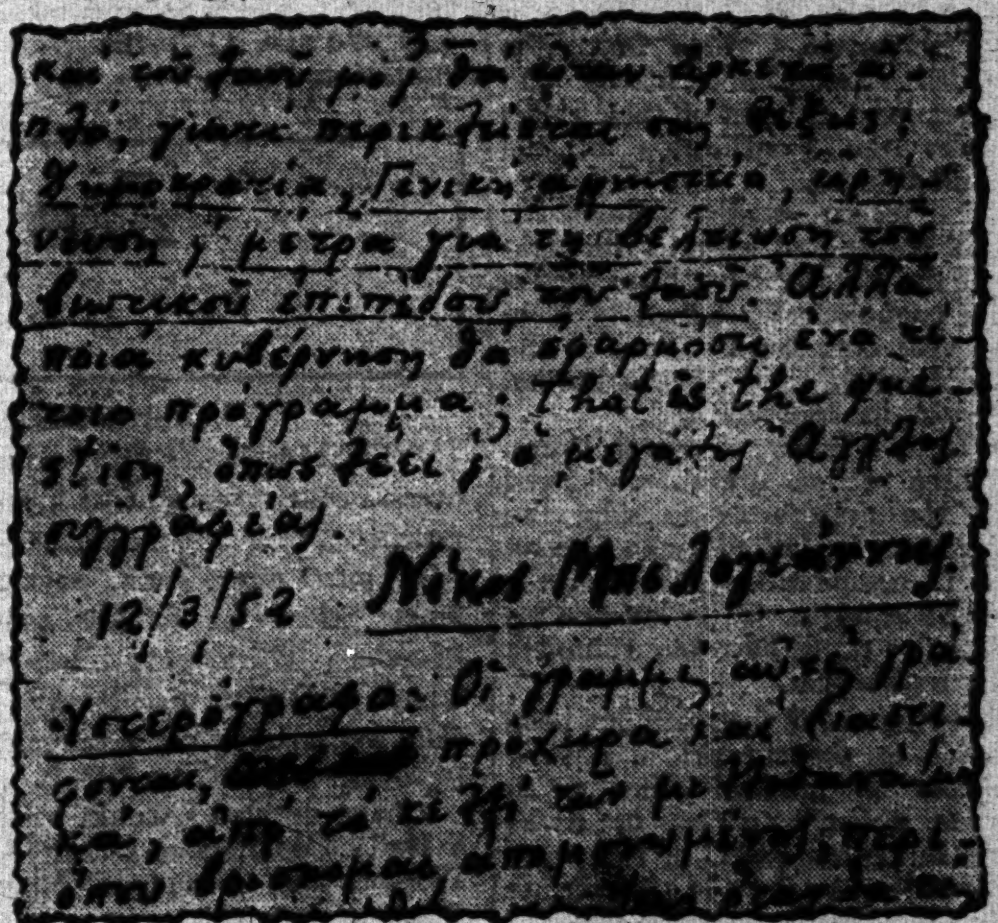 καὶ τοῦ λαοῦ μας, θὰ ἦταν ἀρκετὰ ἁ-
πλό, γιατὶ περικλείεται στὶς λέξεις:
Δημοκρατία, Γενικὴ ἀμνηστεία, εἰρή-
νευση, μέτρα γιὰ τὴ βελτίωση τοῦ
βιωτικοῦ ἐπιπέδου τοῦ λαοῦ. Ἀλλὰ
ποιὰ κυβέρνηση θὰ ἐφαρμόσει ἕνα τέ-
τοιο πρόγραμμα; that is the que-
stion, ὅπως λέει, ὁ μεγάλος Ἄγγλος
συγγραφέας.
12/3/52 Νίκος Μπελογιάννης.
Ὑστερόγραφο: Οἱ γραμμὲς αὐτὲς γρά-
φονται, πρόχειρα καὶ βιαστι-
κά, ἀπὸ τὸ κελλὶ τῶν
ὅπου βρίσκομαι ἀπομονωμένος,